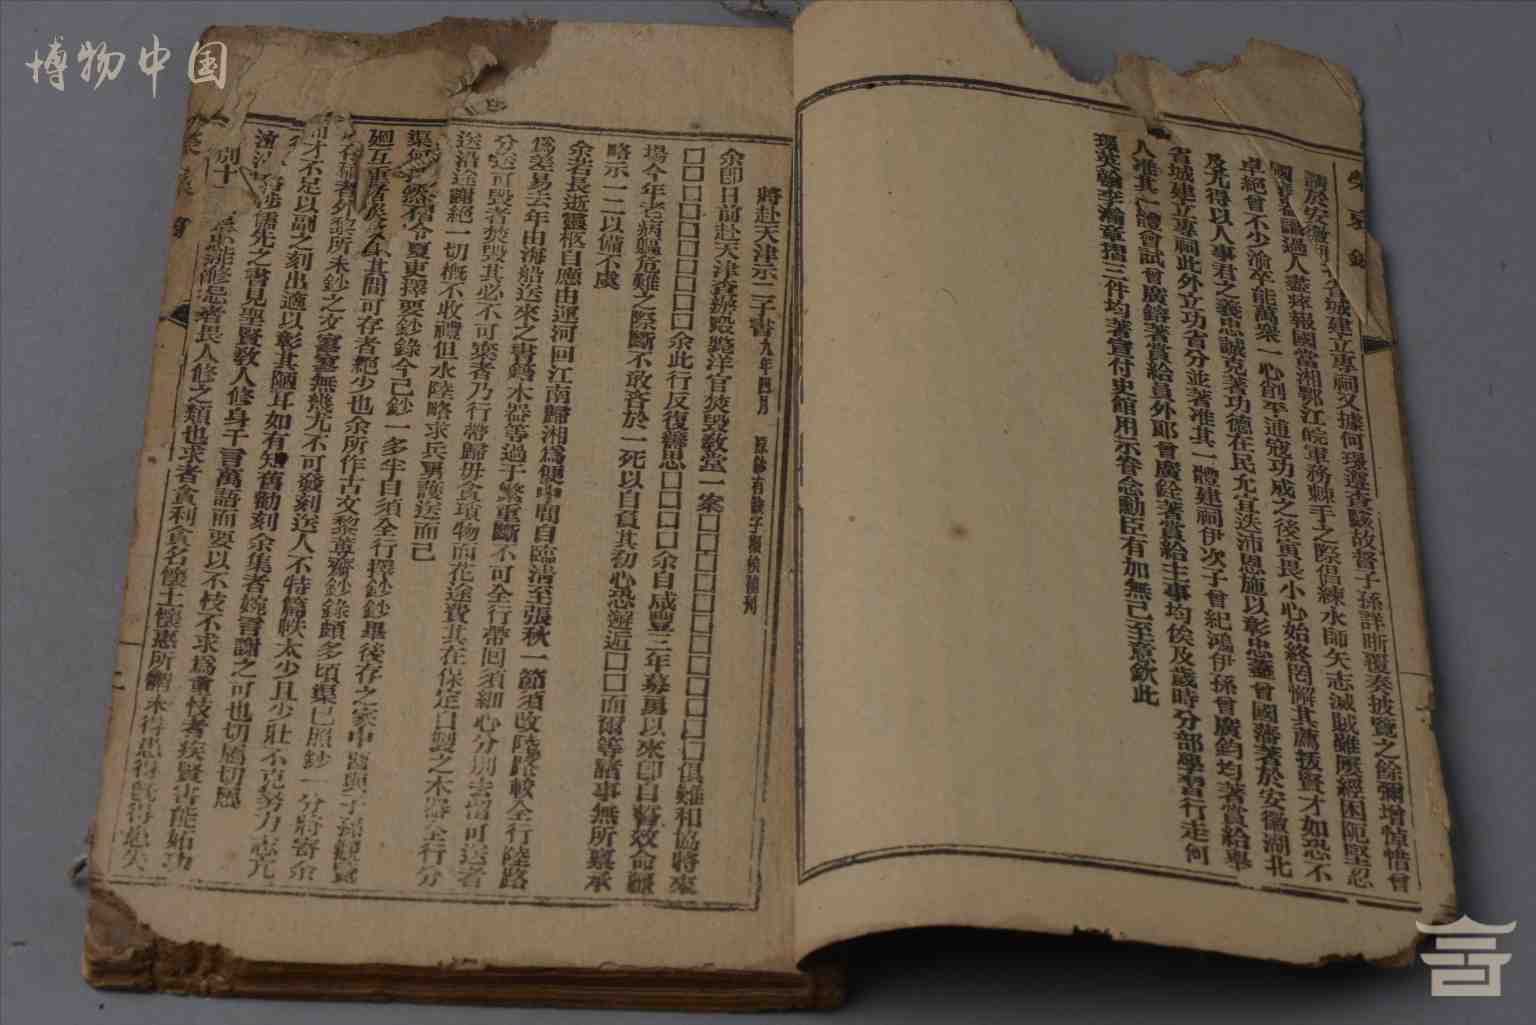 博物中国
榮哀錄
國藩器識過人盡瘁報國當湘鄂江皖軍務棘手之際倡練水師矢志滅賊雖屢經困阨堅忍
卓絕曾不少渝卒能萬眾一心削平逋寇功成之後寅畏小心始終罔懈其薦拔賢才如恐不
及尤得以人事君之義忠誠克著功德在民允宜迭沛恩施以彰忠藎曾國藩著於安徽湖北
省城建立專祠此外立功省分並著准其一體建祠伊次子曾紀鴻伊孫曾廣鈞均著賞給舉
人准其一體會試曾廣鎔著賞給員外郎曾廣銓著賞給主事均俟及歲時分部學習行走何
璟英翰李瀚章摺三件均著宣付史館用示眷念勳臣有加無已至意欽此
將赴天津示二子書九年四月
余卽日前赴天津查辦毆斃洋官焚毀敎堂一案□□□□□□□□□□□俱難和協將來
□□□□□□□□□余此行反復籌思□□□□余自咸豐三年募勇以來卽自誓效命疆
場今年老病軀危難之際斷不敢吝於一死以自負其初心恐邂近□□而爾等諸事無所稟承
略示一二以備不虞
余若長逝靈柩自應由運河回江南歸湘爲便中間自臨清至張秋一節須改陸路較全行陸路
爲差易去年由海船送來之書籍木器等過于繁重斷不可全行帶回須細心分別去留可送者
分送可毀者焚毀其必不可棄者乃行帶歸毋貪瑣物而花途費其在保定自製之木器全行分
送沿途謝絕一切概不收禮但水陸略求兵勇護送而已
令夏吏擇要鈔錄今已鈔一多半自須全行擇鈔鈔畢後存之家中
其間可存者絕少也余所作古文黎蓴齋鈔錄頗多頃渠已照鈔一分寄余
外黎所未鈔之文寥寥無幾尤不可發刻送人不特篇帙太少且少壯不克努力志亢
才不足以副之刻出適以彰其陋耳如有知舊勸刻余集者婉言謝之可也切囑切囑
儒先之書見聖賢敎人修身千言萬語而要以不忮不求爲重忮者疾賢害能妒功
人修之類也求者貪利貪名懷土懷惠所謂未得患得既得患失